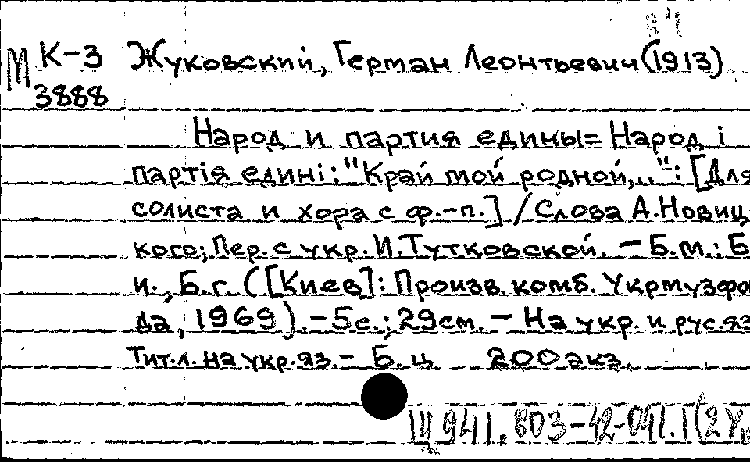 М К-3 Жуковский, Герман Леонтьевич (1913)
3888
Народ и партия едины = Народ і
партія едині: "Край мой родной,..": [Для
солиста и хора с ф.-п.] / Слова А. Новиц-
кого; Пер. с укр. И. Тутковской. – Б.м.: Б.
и., Б.г. ([Киев]: Произв. комб. Укрмузфон-
да, 1969). – 5с.; 29см. – На укр. и рус. яз.
Тит.л. на укр. яз. – Б.ц. 200 экз.
Щ941.803-42-041.1(2Ук